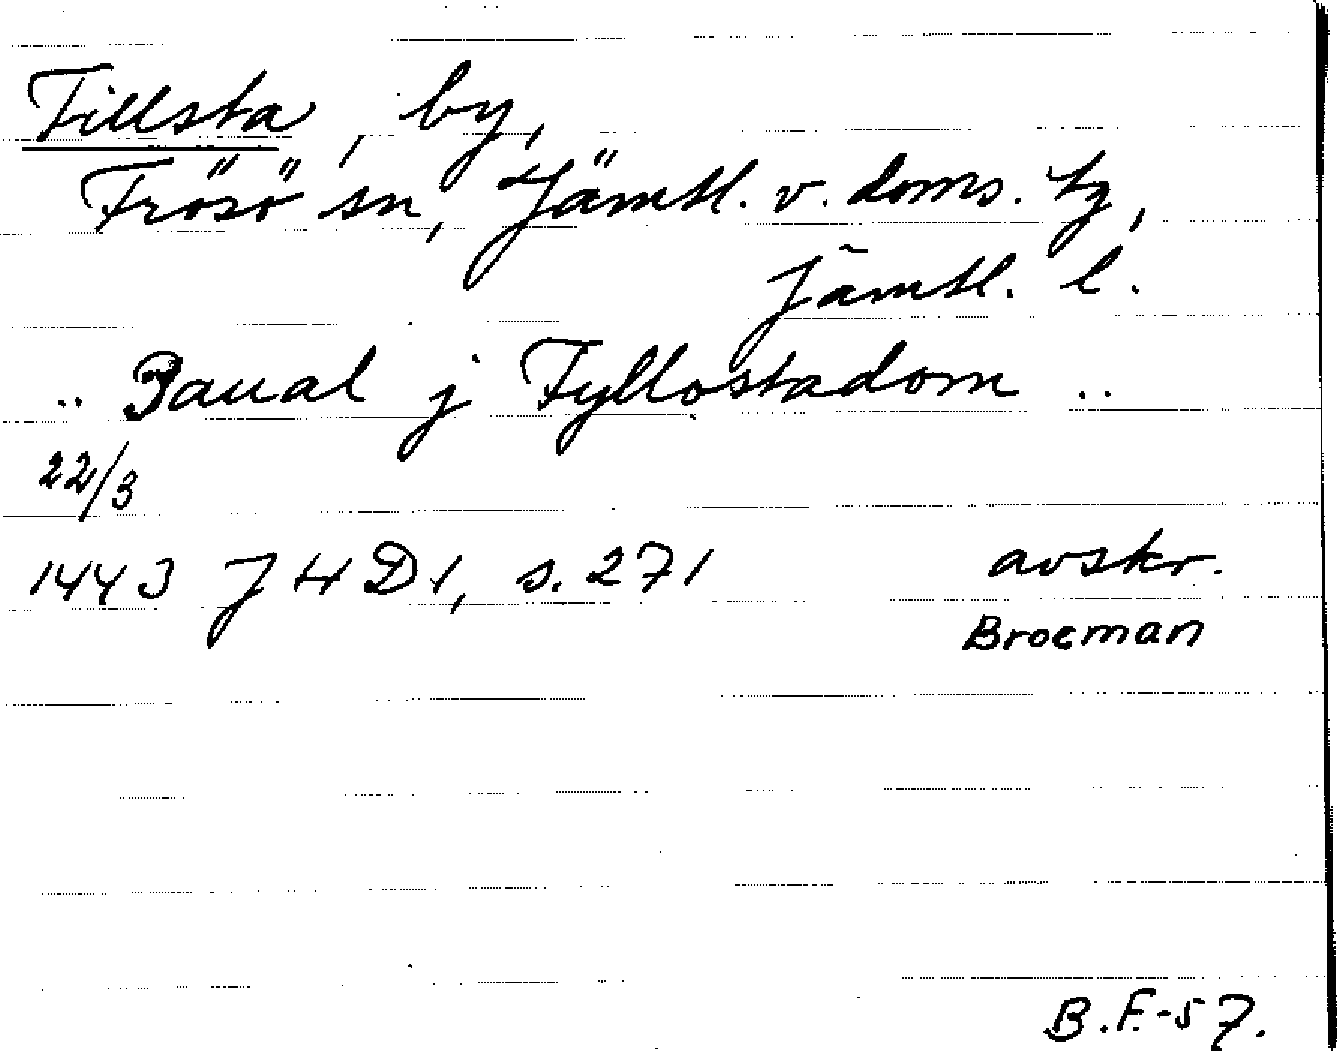 Tillsta, by,
Frösö sn, Jämtl. v. doms. tg,
Jämtl. l.
.. Paual j Fyllostadom ..
22/3
1443 J H D 1, s. 271 avskr.
Broeman
B.F.-57.